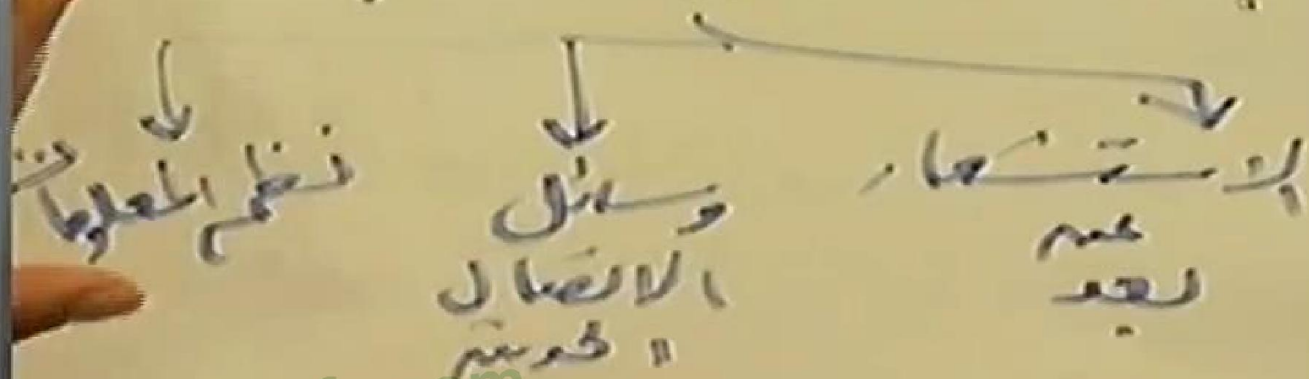 الاستشعار
عن
بعد
وسائل
الاتصال
الحديثة
نظم المعلومات